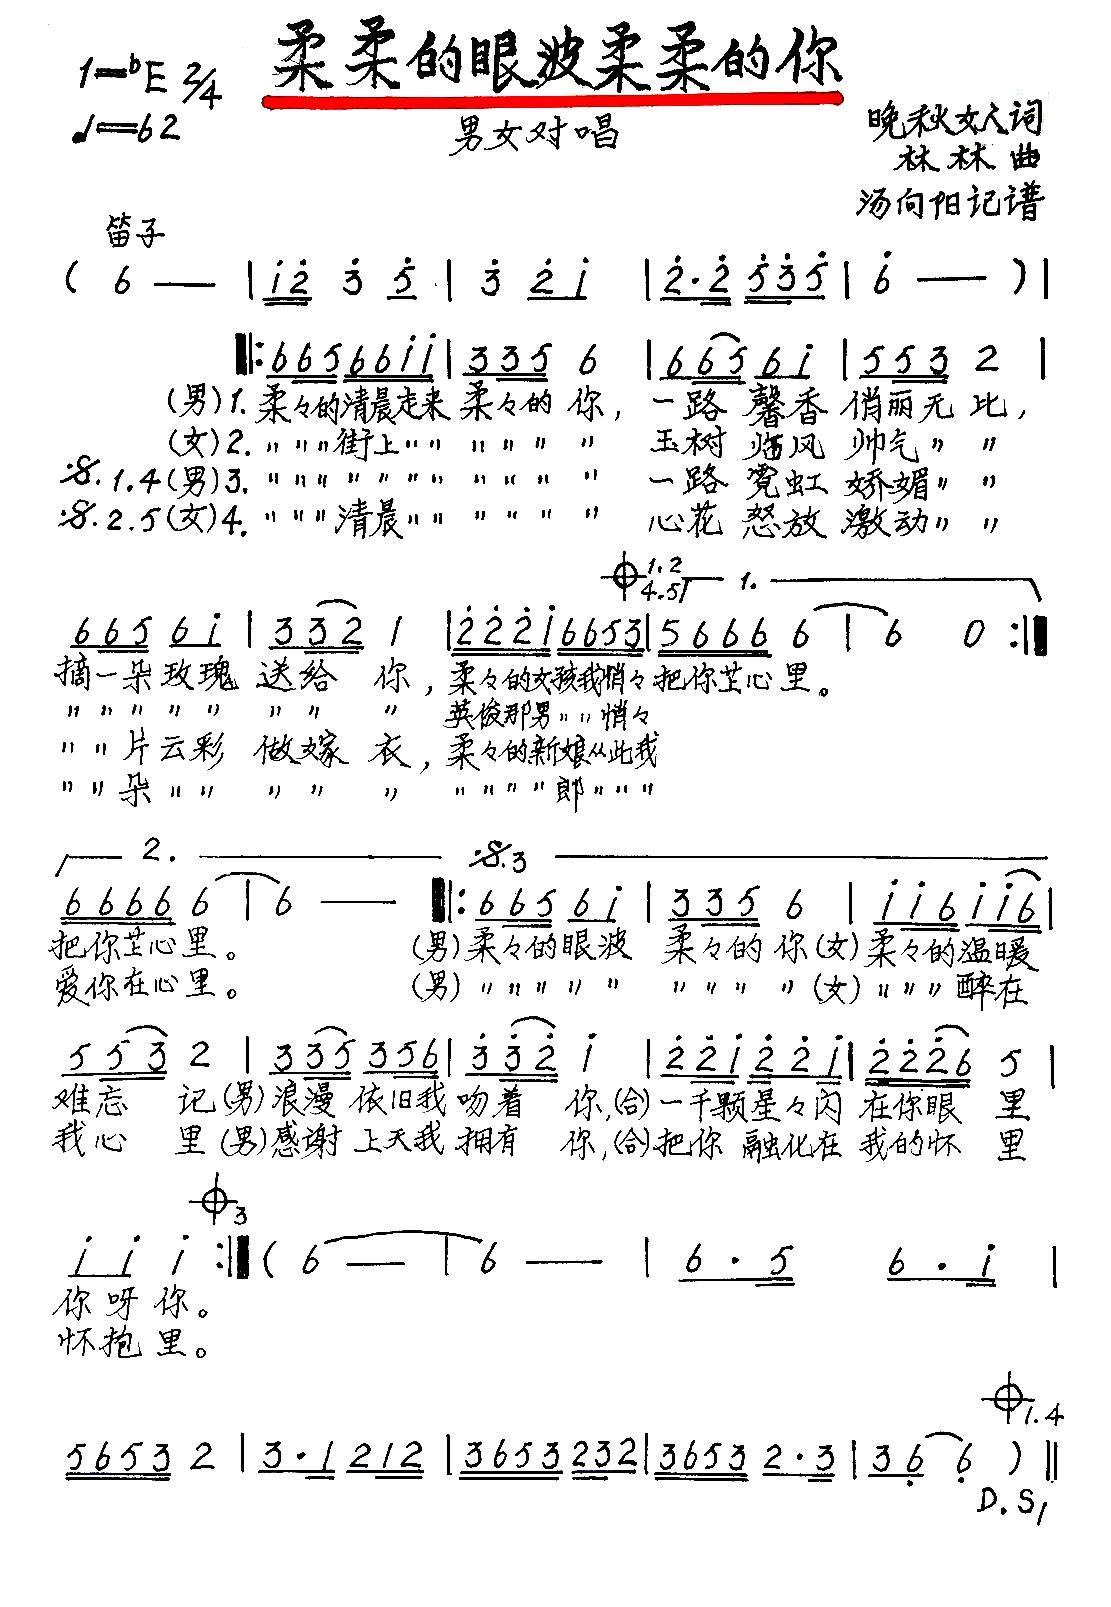 柔柔的眼波柔柔的你
1=♭E 2/4
♩=62
男女对唱
晚秋女人词
林林曲
汤向阳记谱
笛子
( 6 — | i 2 3 5 | 3 2 i | 2·2 5 3 5 | 6 — ) |
‖: 6 6 5 6 6 i i | 3 3 5 6 | 6 6 5 6 i | 5 5 3 2 |
(男)1. 柔々的清晨走来 柔々的 你, 一路 馨香 俏丽无 比,
(女)2. 〃〃〃街上〃〃 〃〃〃 〃 玉树 临风 帅气〃 〃
𝄋.1.4(男)3. 〃〃〃〃〃〃〃 〃〃〃 〃 一路 霓虹 娇媚〃 〃
𝄋.2.5(女)4. 〃〃〃清晨〃〃 〃〃〃 〃 心花 怒放 激动〃 〃
𝄌1.2 4.5 1.
6 6 5 6 i | 3 3 2 1 | 2 2 2 i 6 6 5 3 | 5 6 6 6 6 | 6 0 :‖
摘一朵玫瑰 送给 你, 柔々的女孩我悄々 把你芷心里。
〃〃〃〃〃 〃〃 〃 英俊那男〃〃悄々
〃〃片云彩 做嫁 衣, 柔々的新娘从此我
〃〃朵〃〃 〃〃 〃 〃〃〃〃郎〃〃〃
2. 𝄋.3
6 6 6 6 6 | 6 — ‖: 6 6 5 6 i | 3 3 5 6 | i i 6 i i 6 |
把你芷心里。 (男)柔々的眼波 柔々的 你(女)柔々的温暖
爱你在心里。 (男)〃〃〃〃〃 〃〃〃 〃(女)〃〃〃醉在
5 5 3 2 | 3 3 5 3 5 6 | 3 3 2 i | 2 2 i 2 2 i | 2 2 2 6 5 |
难忘 记(男)浪漫 依旧我 吻着 你,(合)一千颗星々闪 在你眼 里
我心 里(男)感谢 上天我 拥有 你,(合)把你 融化在 我的怀 里
𝄌3
i i i :‖ ( 6 — | 6 — | 6·5 6·i |
你呀 你。
怀抱 里。
𝄌1.4
5 6 5 3 2 | 3·1 2 1 2 | 3 6 5 3 2 3 2 | 3 6 5 3 2·3 | 3 6 6 ) ‖
D.S/